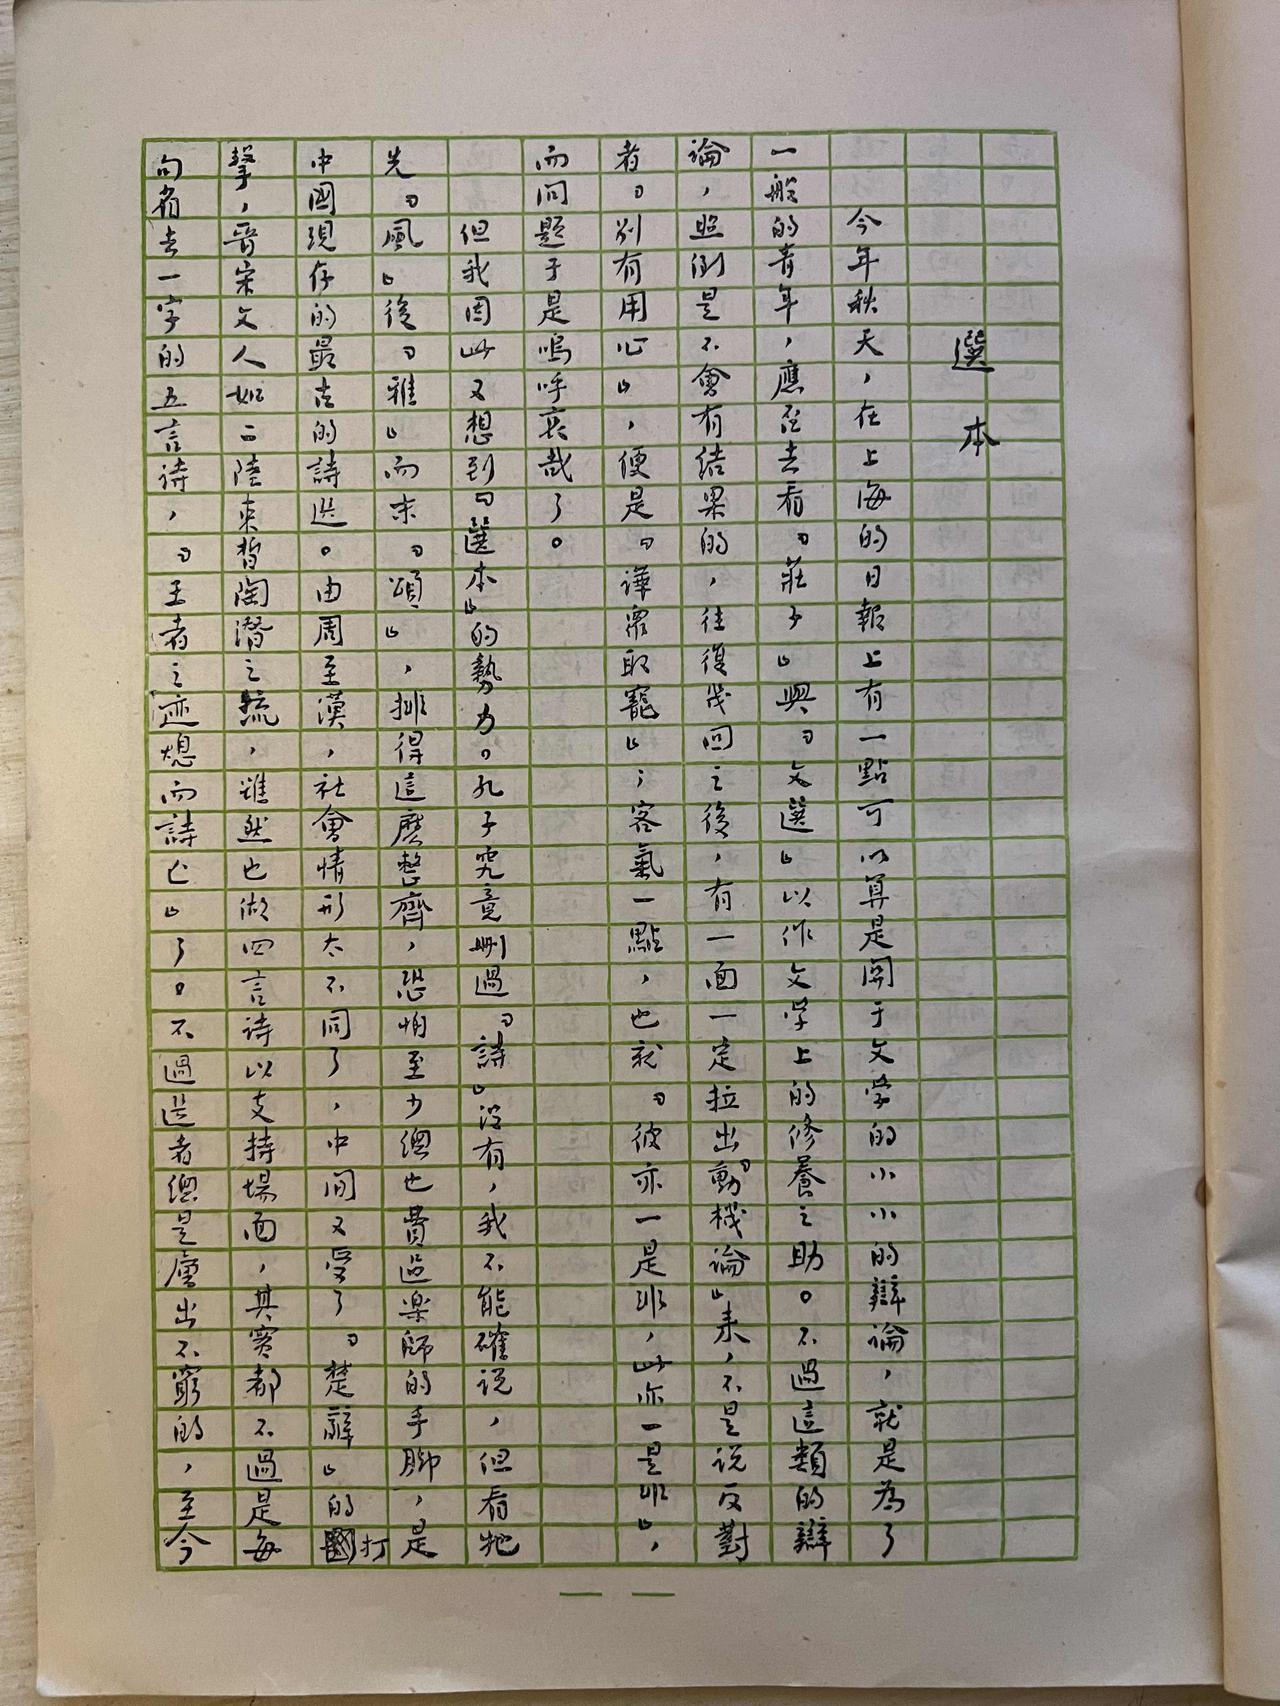 選本
今年秋天，在上海的日報上有一點可以算是関于文学的小小的辯論，就是為了
一般的青年，應否去看『莊子』與『文選』以作文学上的修養之助。不過這類的辯
論，照例是不會有結果的，往復幾回之後，有一面一定拉出『動機論』来，不是说反對
者『別有用心』，便是『譁衆取寵』；客氣一點，也就『彼亦一是非，此亦一是非』，
而问題于是嗚呼哀哉了。
但我因此又想到『選本』的勢力。孔子究竟删過『詩』没有，我不能確说，但看牠
先『風』後『雅』而末『頌』，排得這麽整齊，恐怕至少總也費過楽師的手脚，是
中國現存的最古的詩选。由周至漢，社會情形太不同了，中间又受了『楚辭』的打
擊，晋宋文人如二陸束晳陶潛之流，雖然也做四言诗以支持場面，其實都不過是每
句省去一字的五言诗，『王者之迹熄而詩亡』了。不過选者總是層出不窮的，至今
一一